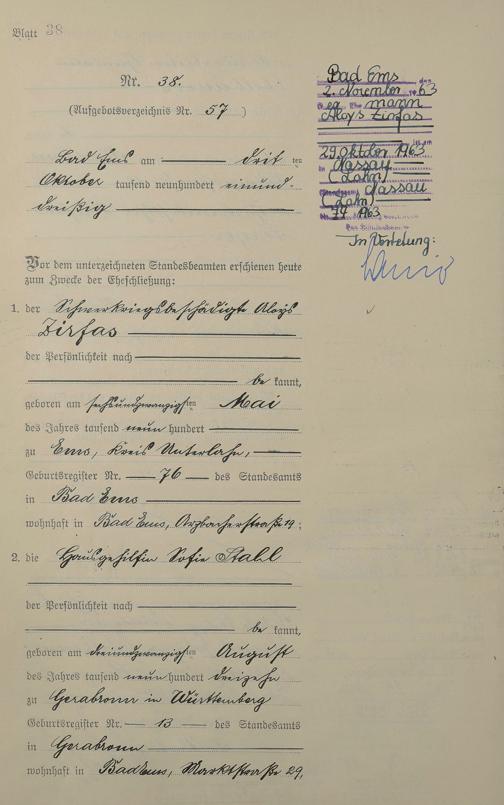 Blatt 38
Nr. 38.
(Aufgebotsverzeichnis Nr. 57)
Bad Ems am dritten
Oktober tausend neunhundert einund-
dreißig
Vor dem unterzeichneten Standesbeamten erschienen heute
zum Zwecke der Eheschließung:
1. der Schwerkriegsbeschädigte Aloys
Zirfas
der Persönlichkeit nach
be kannt,
geboren am sechsundzwanzigsten Mai
des Jahres tausend neun hundert
zu Ems, Kreis Unterlahn,
Geburtsregister Nr. 76 des Standesamts
in Bad Ems
wohnhaft in Bad Ems, Arzbacherstraße 19;
2. die Hausgehilfin Sofie Stahl
der Persönlichkeit nach
be kannt,
geboren am dreiundzwanzigsten August
des Jahres tausend neun hundert dreizehn
zu Gerabronn in Württemberg
Geburtsregister Nr. 13 des Standesamts
in Gerabronn
wohnhaft in Bad Ems, Marktstraße 29,
Bad Ems den
2. November 1963
Ehemann
Aloys Zirfas
ist am
29. Oktober 1963
in Nassau
(Lahn)
Standesamt Nassau
(Lahn)
Nr. 1963
Der Standesbeamte
In Vertretung: